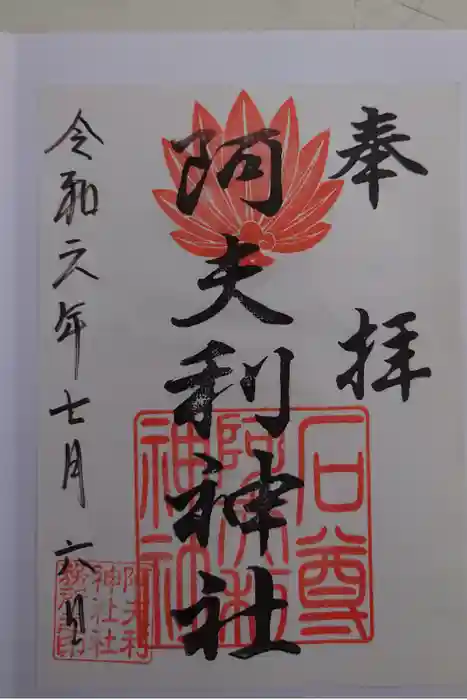 奉拝
阿夫利神社
石尊
阿夫利
神社
令和六年七月六日
阿夫利
神社社
務所之印